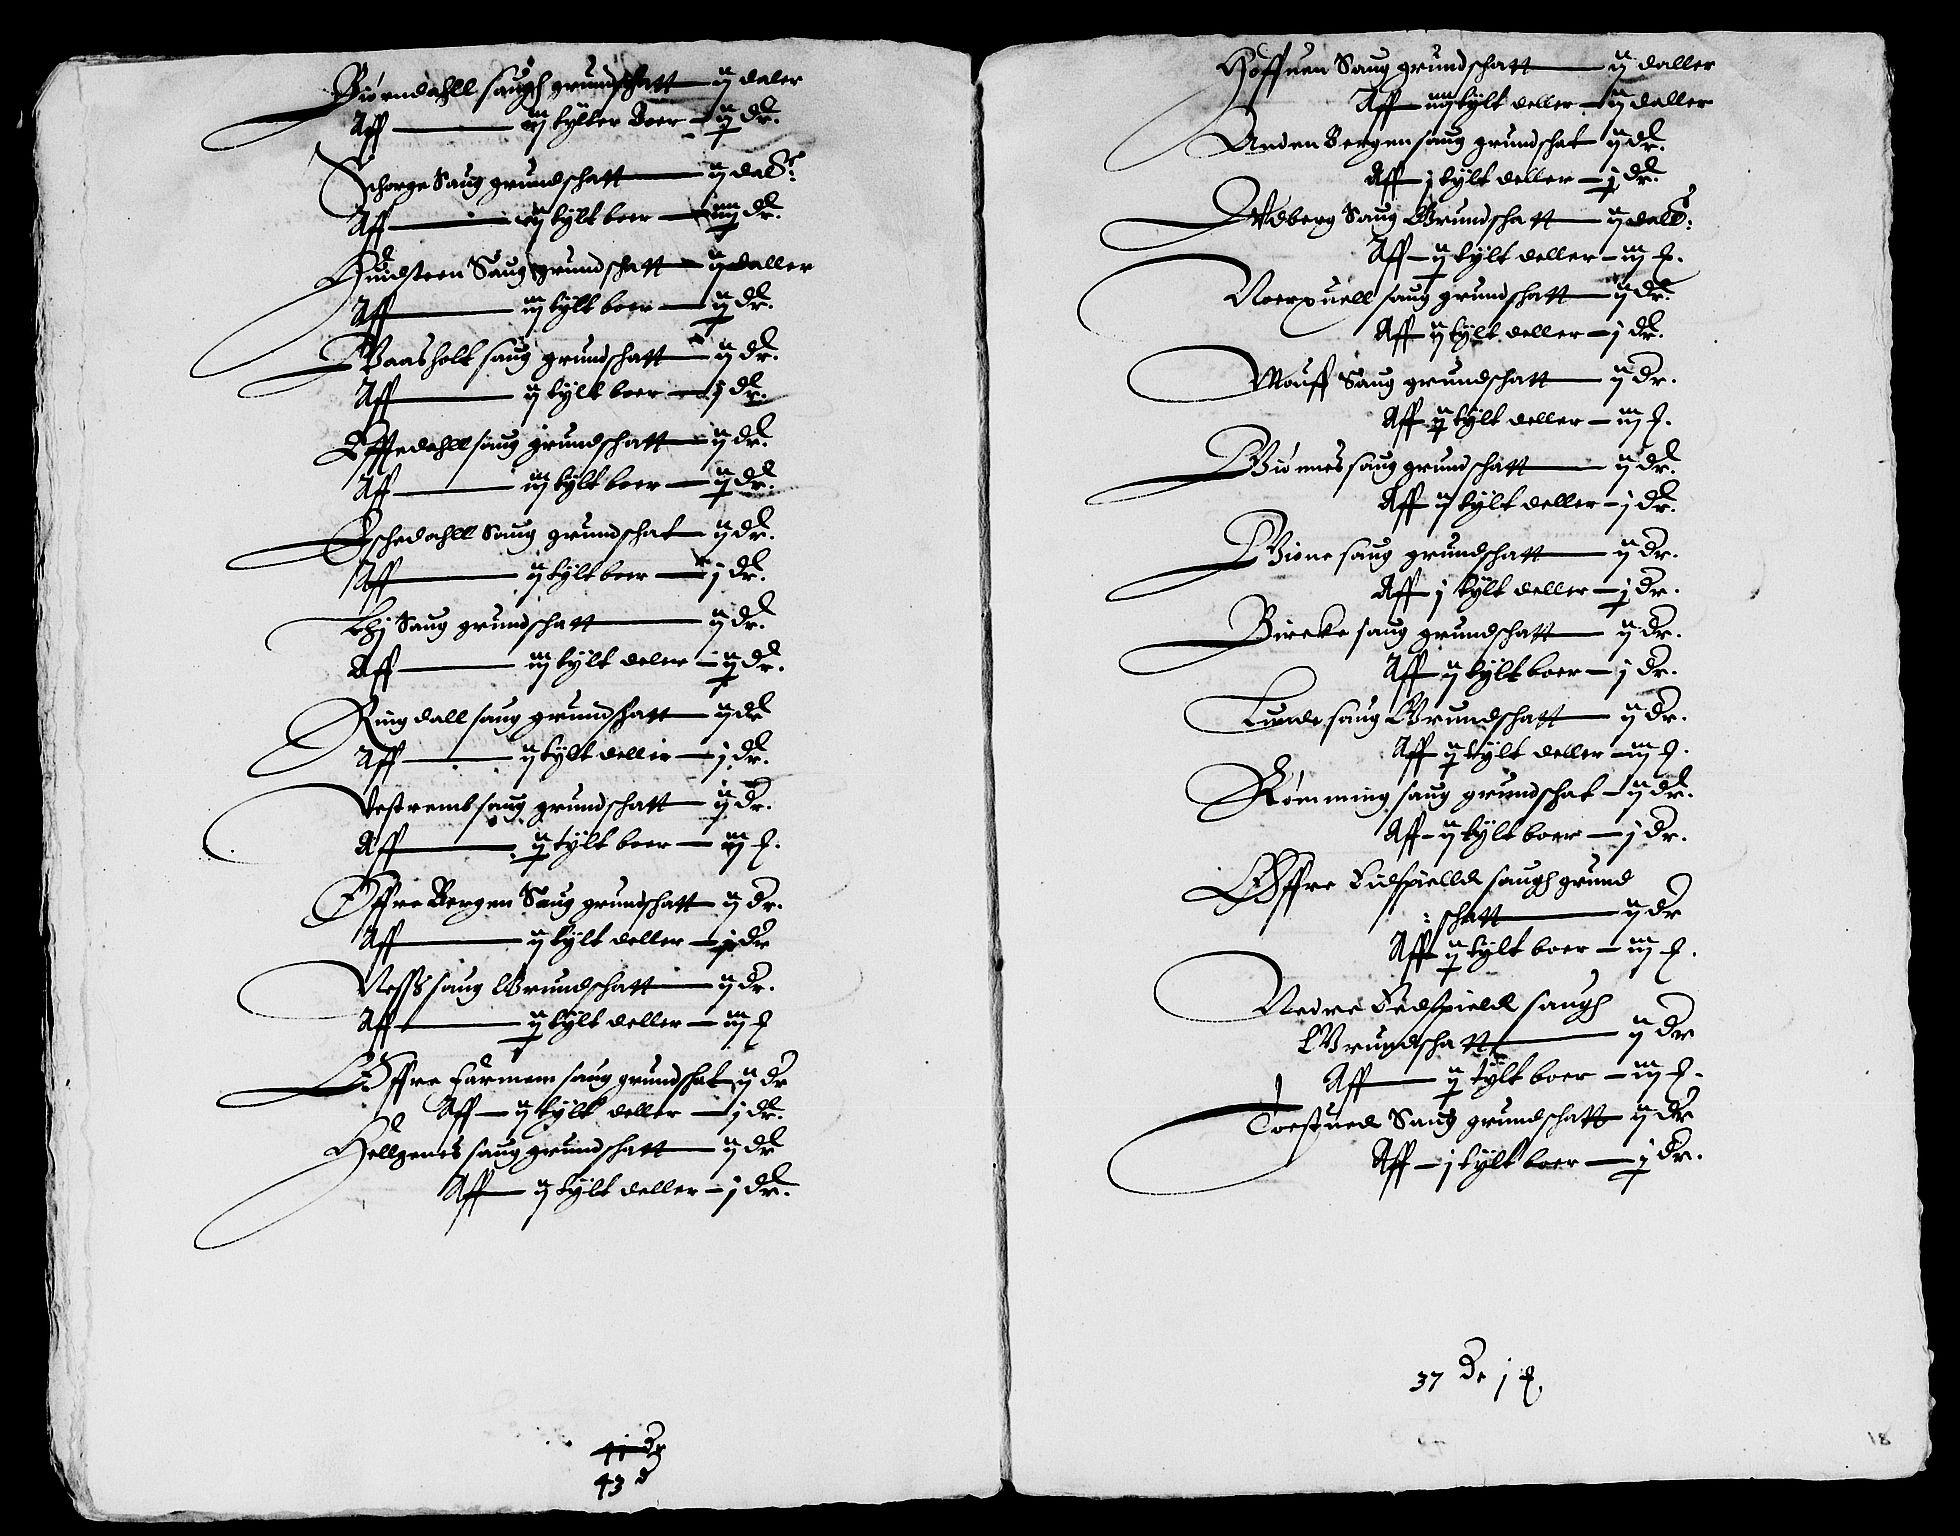 Biørndahll saugh grundschatt — ij daler
Aff — iij tylter Boer — ij dr.
Schorge Saug grundschatt — ij dalr:
Aff — tylt boer — iiij dr.
Huidsteen Saug grundschatt — ij daller
Aff — iij tylt boer — ij dr.
Waasholt saug grundschatt — ij dr.
Aff — ij tylt boer — j dr.
Effiedahll saug grundschatt — ij dr.
Aff — iij tylt boer — ij dr.
schedahll Saug grundschat — ij dr.
Aff — ij tylt boer — j dr.
Saug grundschatt — ij dr.
Aff — iij tylt deler — ij dr.
Ringdall saug grundschatt — ij dr
Aff — ij tylt deller — j dr.
Vestremb saug grundschatt — ij dr.
Aff — ij tylt boer — iij
Offre Bergen Saug grundschatt — ij dr.
Aff — ij tylt deller — j dr
Neffs saug Grundschatt — ij dr.
Aff — ij tylt deller — iij
Offre Farmem saug grundschat — ij dr
Aff — ij tylt deller — j dr.
Hellgenes saug grundschatt — ij dr
Aff — ij tylt deller — j dr.
41 Dr
43 d
Hoffuen Saug grundschatt — ij daller
Aff — iiij tylt deller — ij daller
Neden Bergen saug grundschat — ij dr.
Aff — j tylt deller — j dr.
Odberg Saug Grundschatt — ij dalr:
Aff — ij tylt deller — iij
Noerquell saug grundschatt — ij dr.
Aff — ij tylt deller — j dr.
Mouff Saug grundschatt — ij dr.
Aff — ij tylt deller — iij
Wiønnes saug grundschatt — ij dr.
Aff — ij tylt deller — j dr.
Wiøne saug grundschatt — ij dr.
Aff — j tylt deller — j dr.
Bireke saug grundschatt — ij dr.
Aff — ij tylt boer — j dr.
Lunde saug Grundschatt — ij dr.
Aff — ij tylt deller — iij
Rømming saug grundschat — ij dr.
Aff — ij tylt boer — j dr.
Offre Fidspielld saugh grund
: schatt — ij dr
Aff — ij tylt boer — iij
Nedre Fedspield saugh
Grundschatt — ij dr
Aff — ij tylt boer — iij
Toestued Saug grundschatt — ij dr
Aff — j tylt boer — j dr.
37 Dr j
18